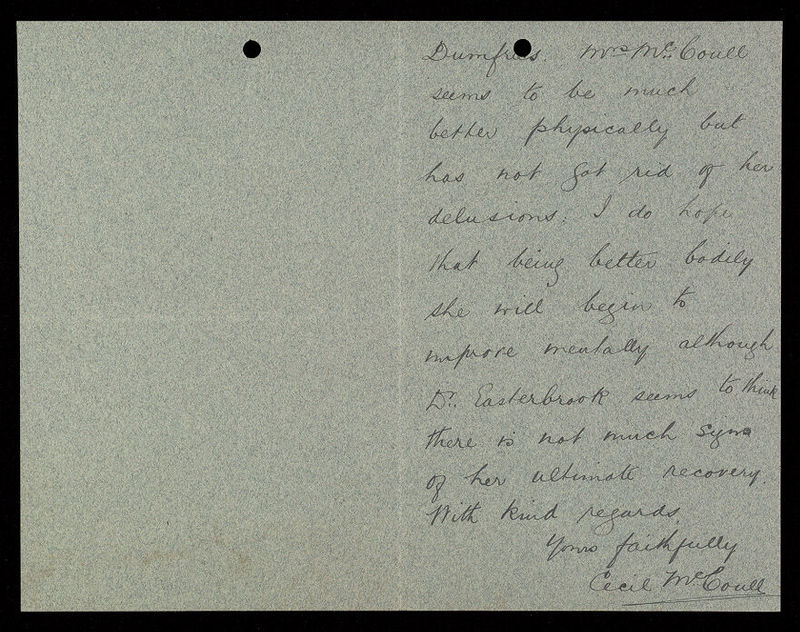 Dumfries. Mrs McCoull
seems to be much
better physically but
has not got rid of her
delusions. I do hope
that being better bodily
she will begin to
improve mentally although
Dr. Easterbrook seems to think
there is not much signs
of her ultimate recovery.
With kind regards.
Yours faithfully
Cecil McCoull